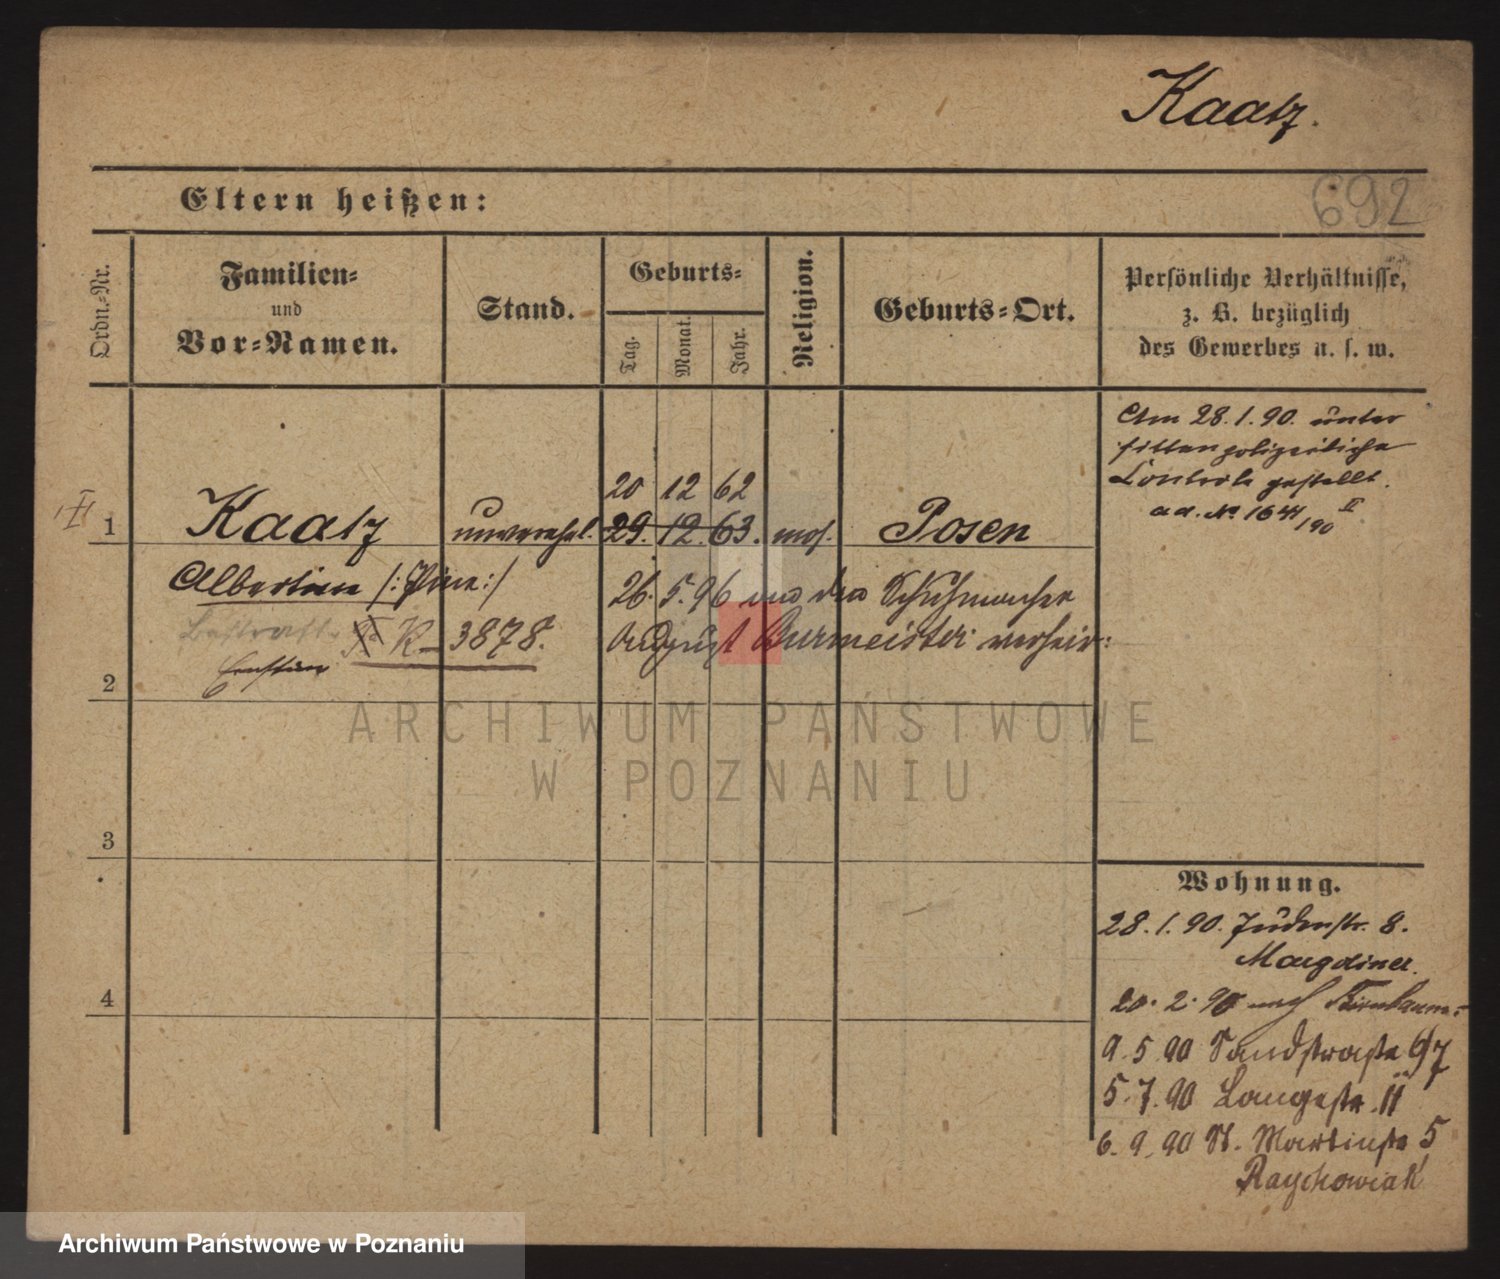 Kaatz.
Eltern heißen:
692
Ordn.-Nr.
Familien-
und
Vor-Namen.
Stand.
Geburts-
Tag.
Monat.
Jahr.
Religion.
Geburts-Ort.
Persönliche Verhältnisse,
z. B. bezüglich
des Gewerbes u. s. w.
Am 28.1.90. unter
sittenpolizeiliche
Controle gestellt.
ad. No 1641/190 II
20 12 62
1 Kaatz unverehel. 29. 12. 63. mos. Posen
Albertine /: :/
26. 5. 96 den Schuhmacher
Bestraft. K 3878.
August Burmeister verheir:
2
ARCHIWUM PAŃSTWOWE
W POZNANIU
3
Wohnung.
28.1.90. Judenstr. 8.
4
20. 2. 90 nach Birnbaum.
9.5.90 Sandstraße
5.7.90 Langestr. 11
6.9.90 St. Martinstr 5
Raychowiak
Archiwum Państwowe w Poznaniu